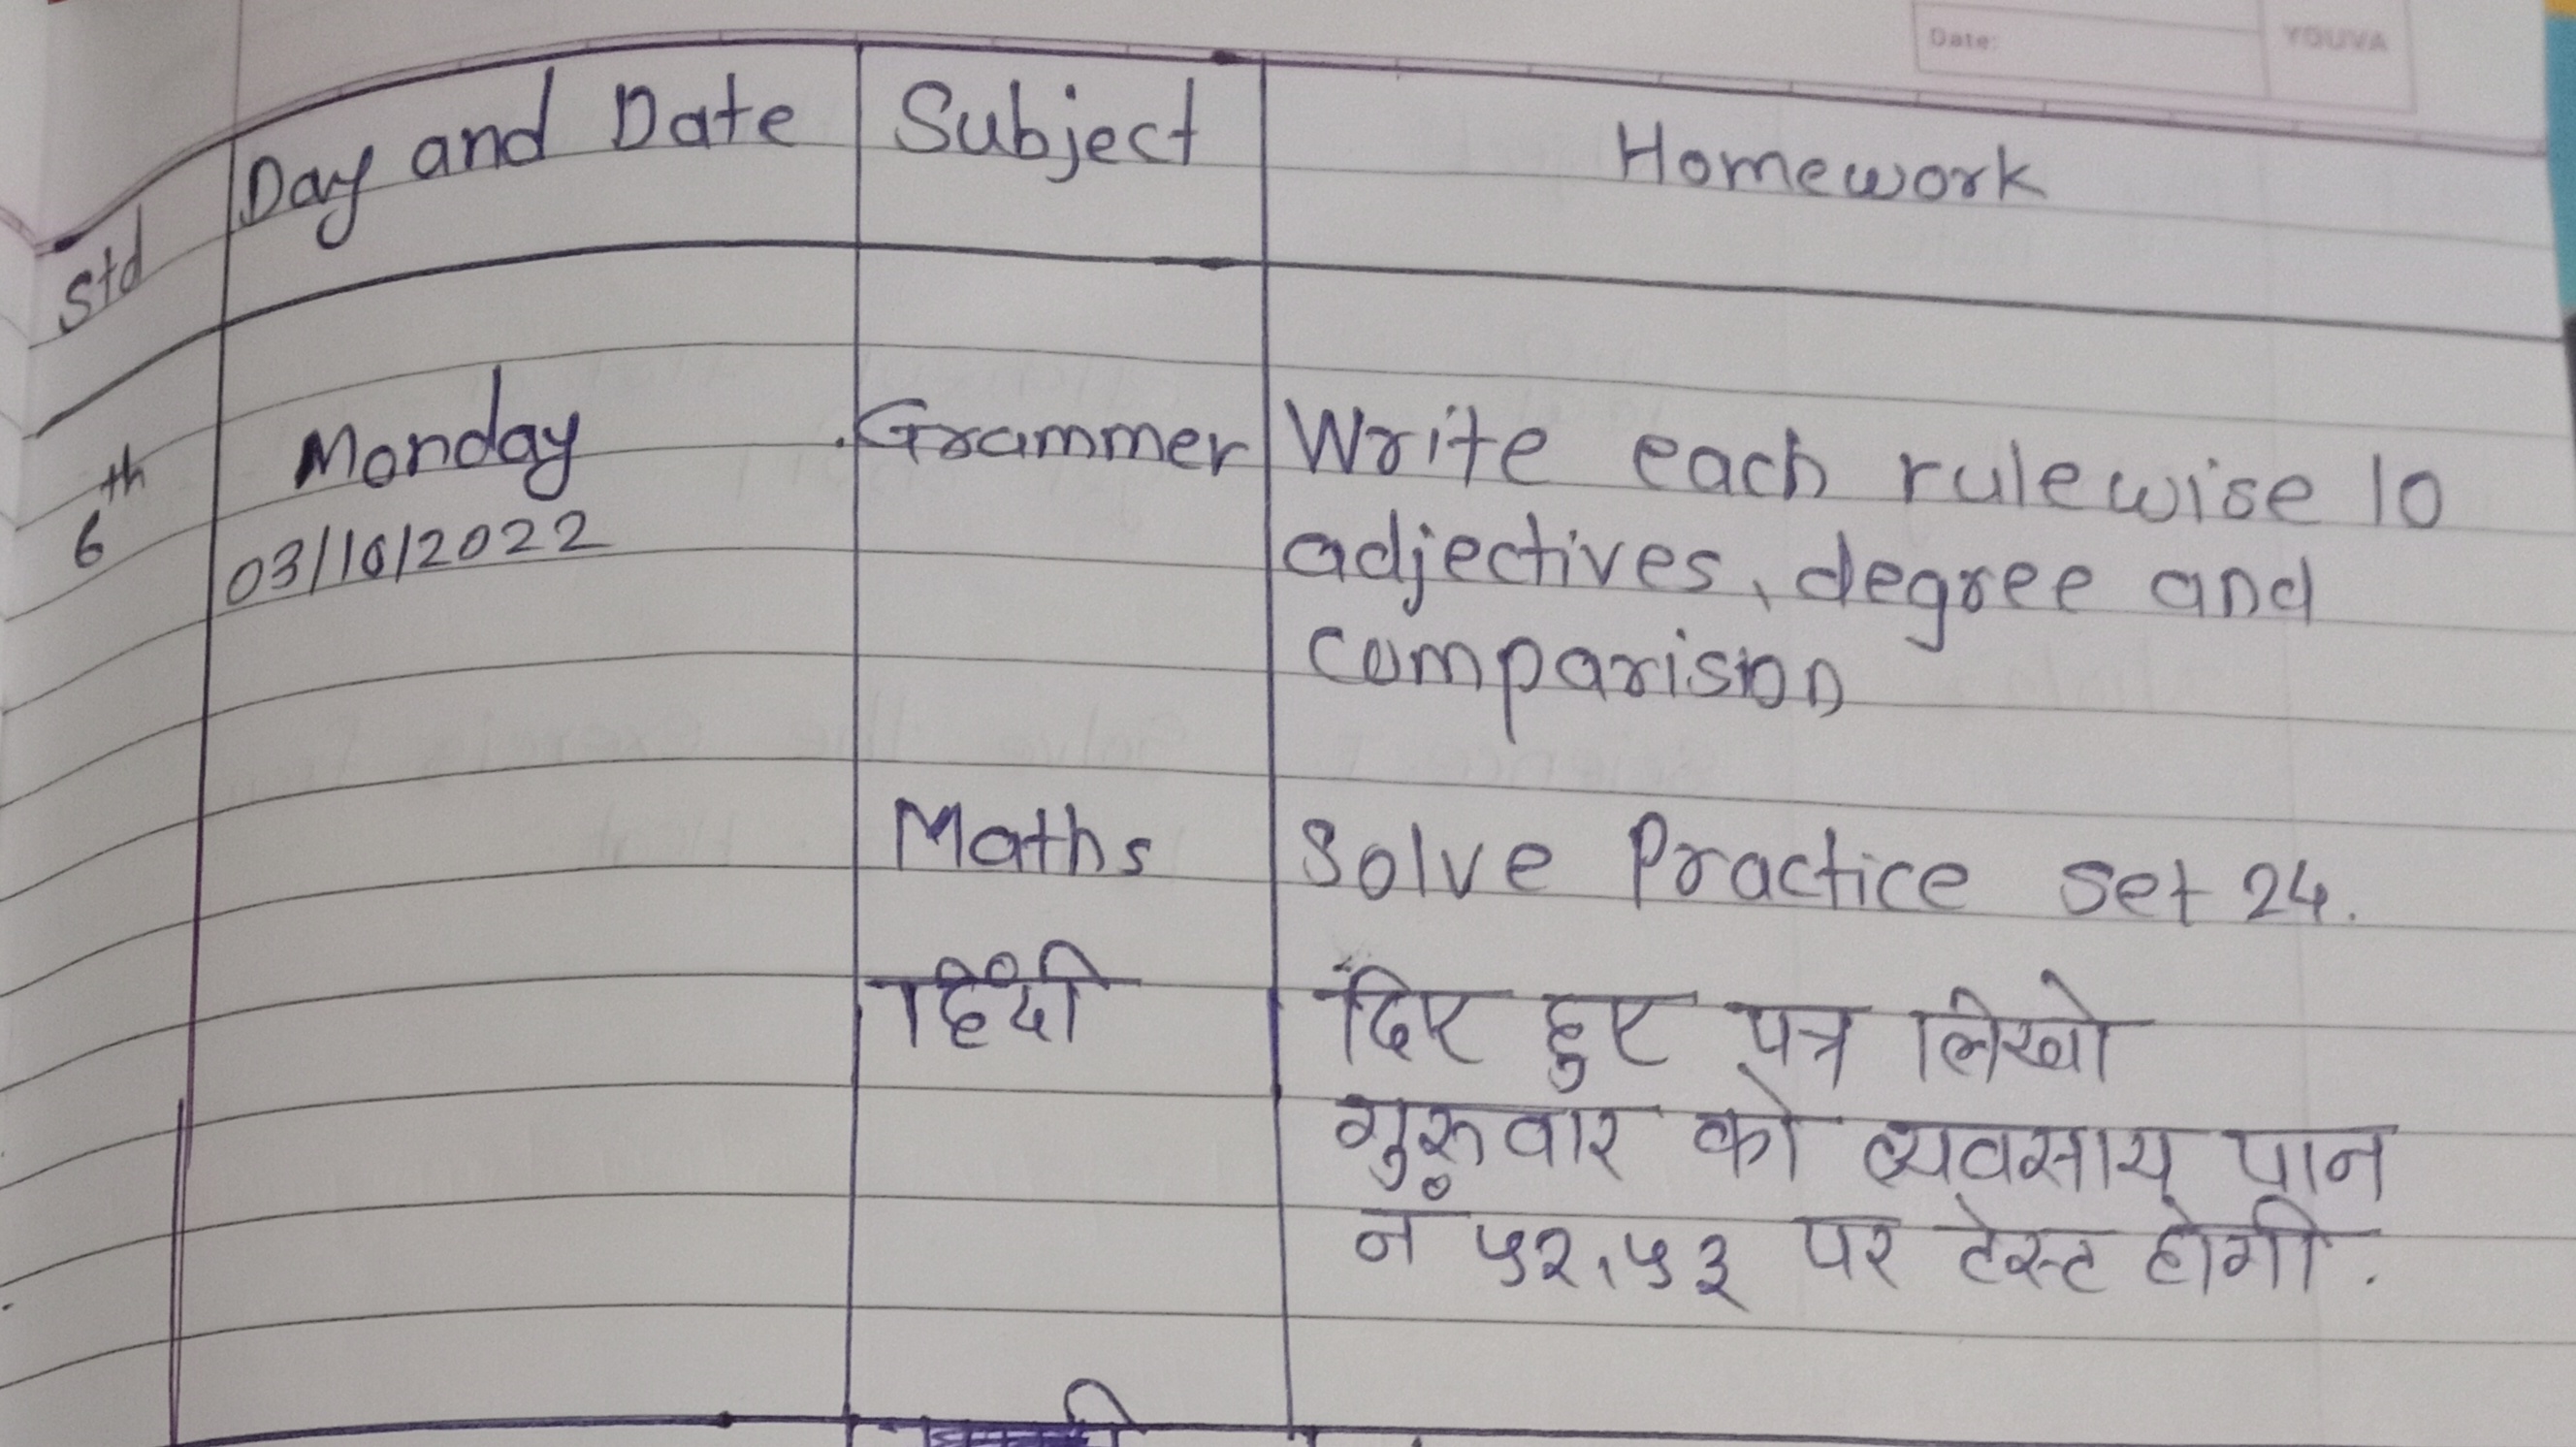 Date:
YOUVA
Std Day and Date Subject Homework
6th Monday Grammer Write each rulewise 10
03/10/2022 adjectives, degree and
comparision
Maths Solve Practice set 24.
हिंदी दिए हुए पत्र लिखो
गुरुवार को व्यवसाय पान
नं ५२,५३ पर टेस्ट होगी.